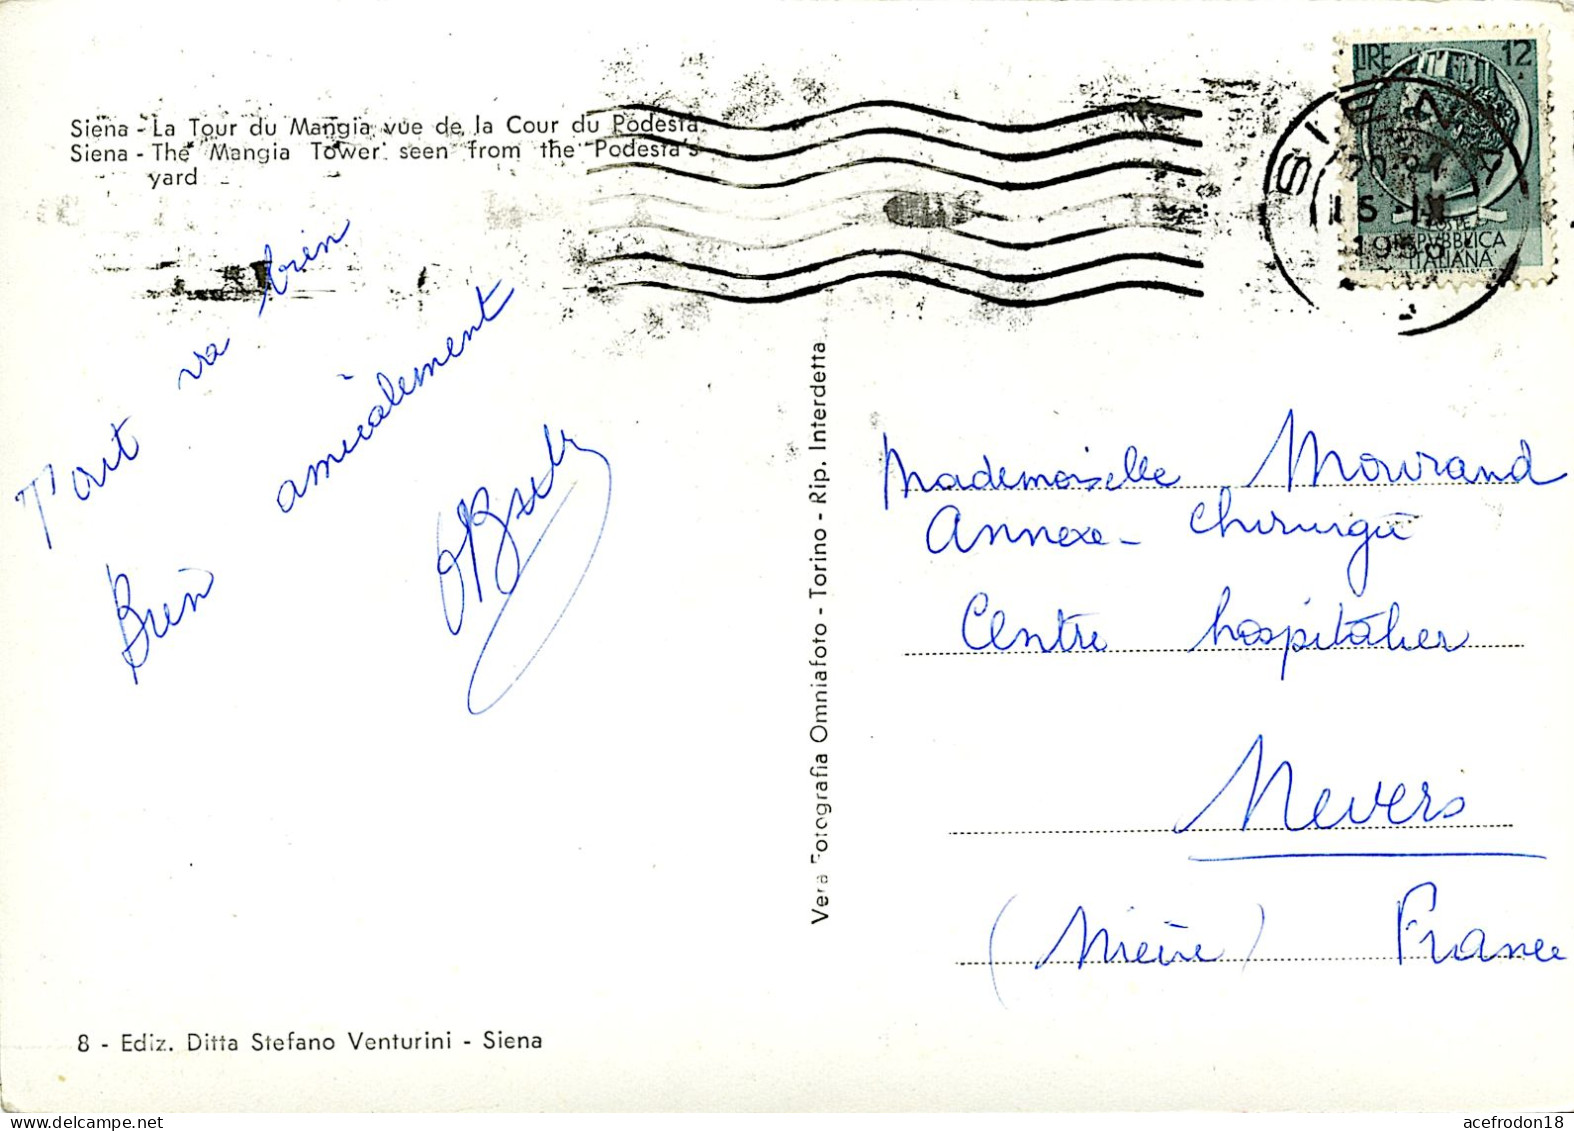 Siena - La Tour du Mangia vue de la Cour du Podestà.
Siena - The Mangia Tower seen from the Podestà's
yard
LIRE 12
SIENA
15 IX
19
REPVBBLICA
ITALIANA
Tout va bien
Bien amicalement
Mademoiselle Mourand
Annexe - Chirurgie
Centre hospitalier
Nevers
(Nièvre) France
Vera Fotografia Omniafoto - Torino - Rip. Interdetta
8 - Ediz. Ditta Stefano Venturini - Siena
acefrodon18